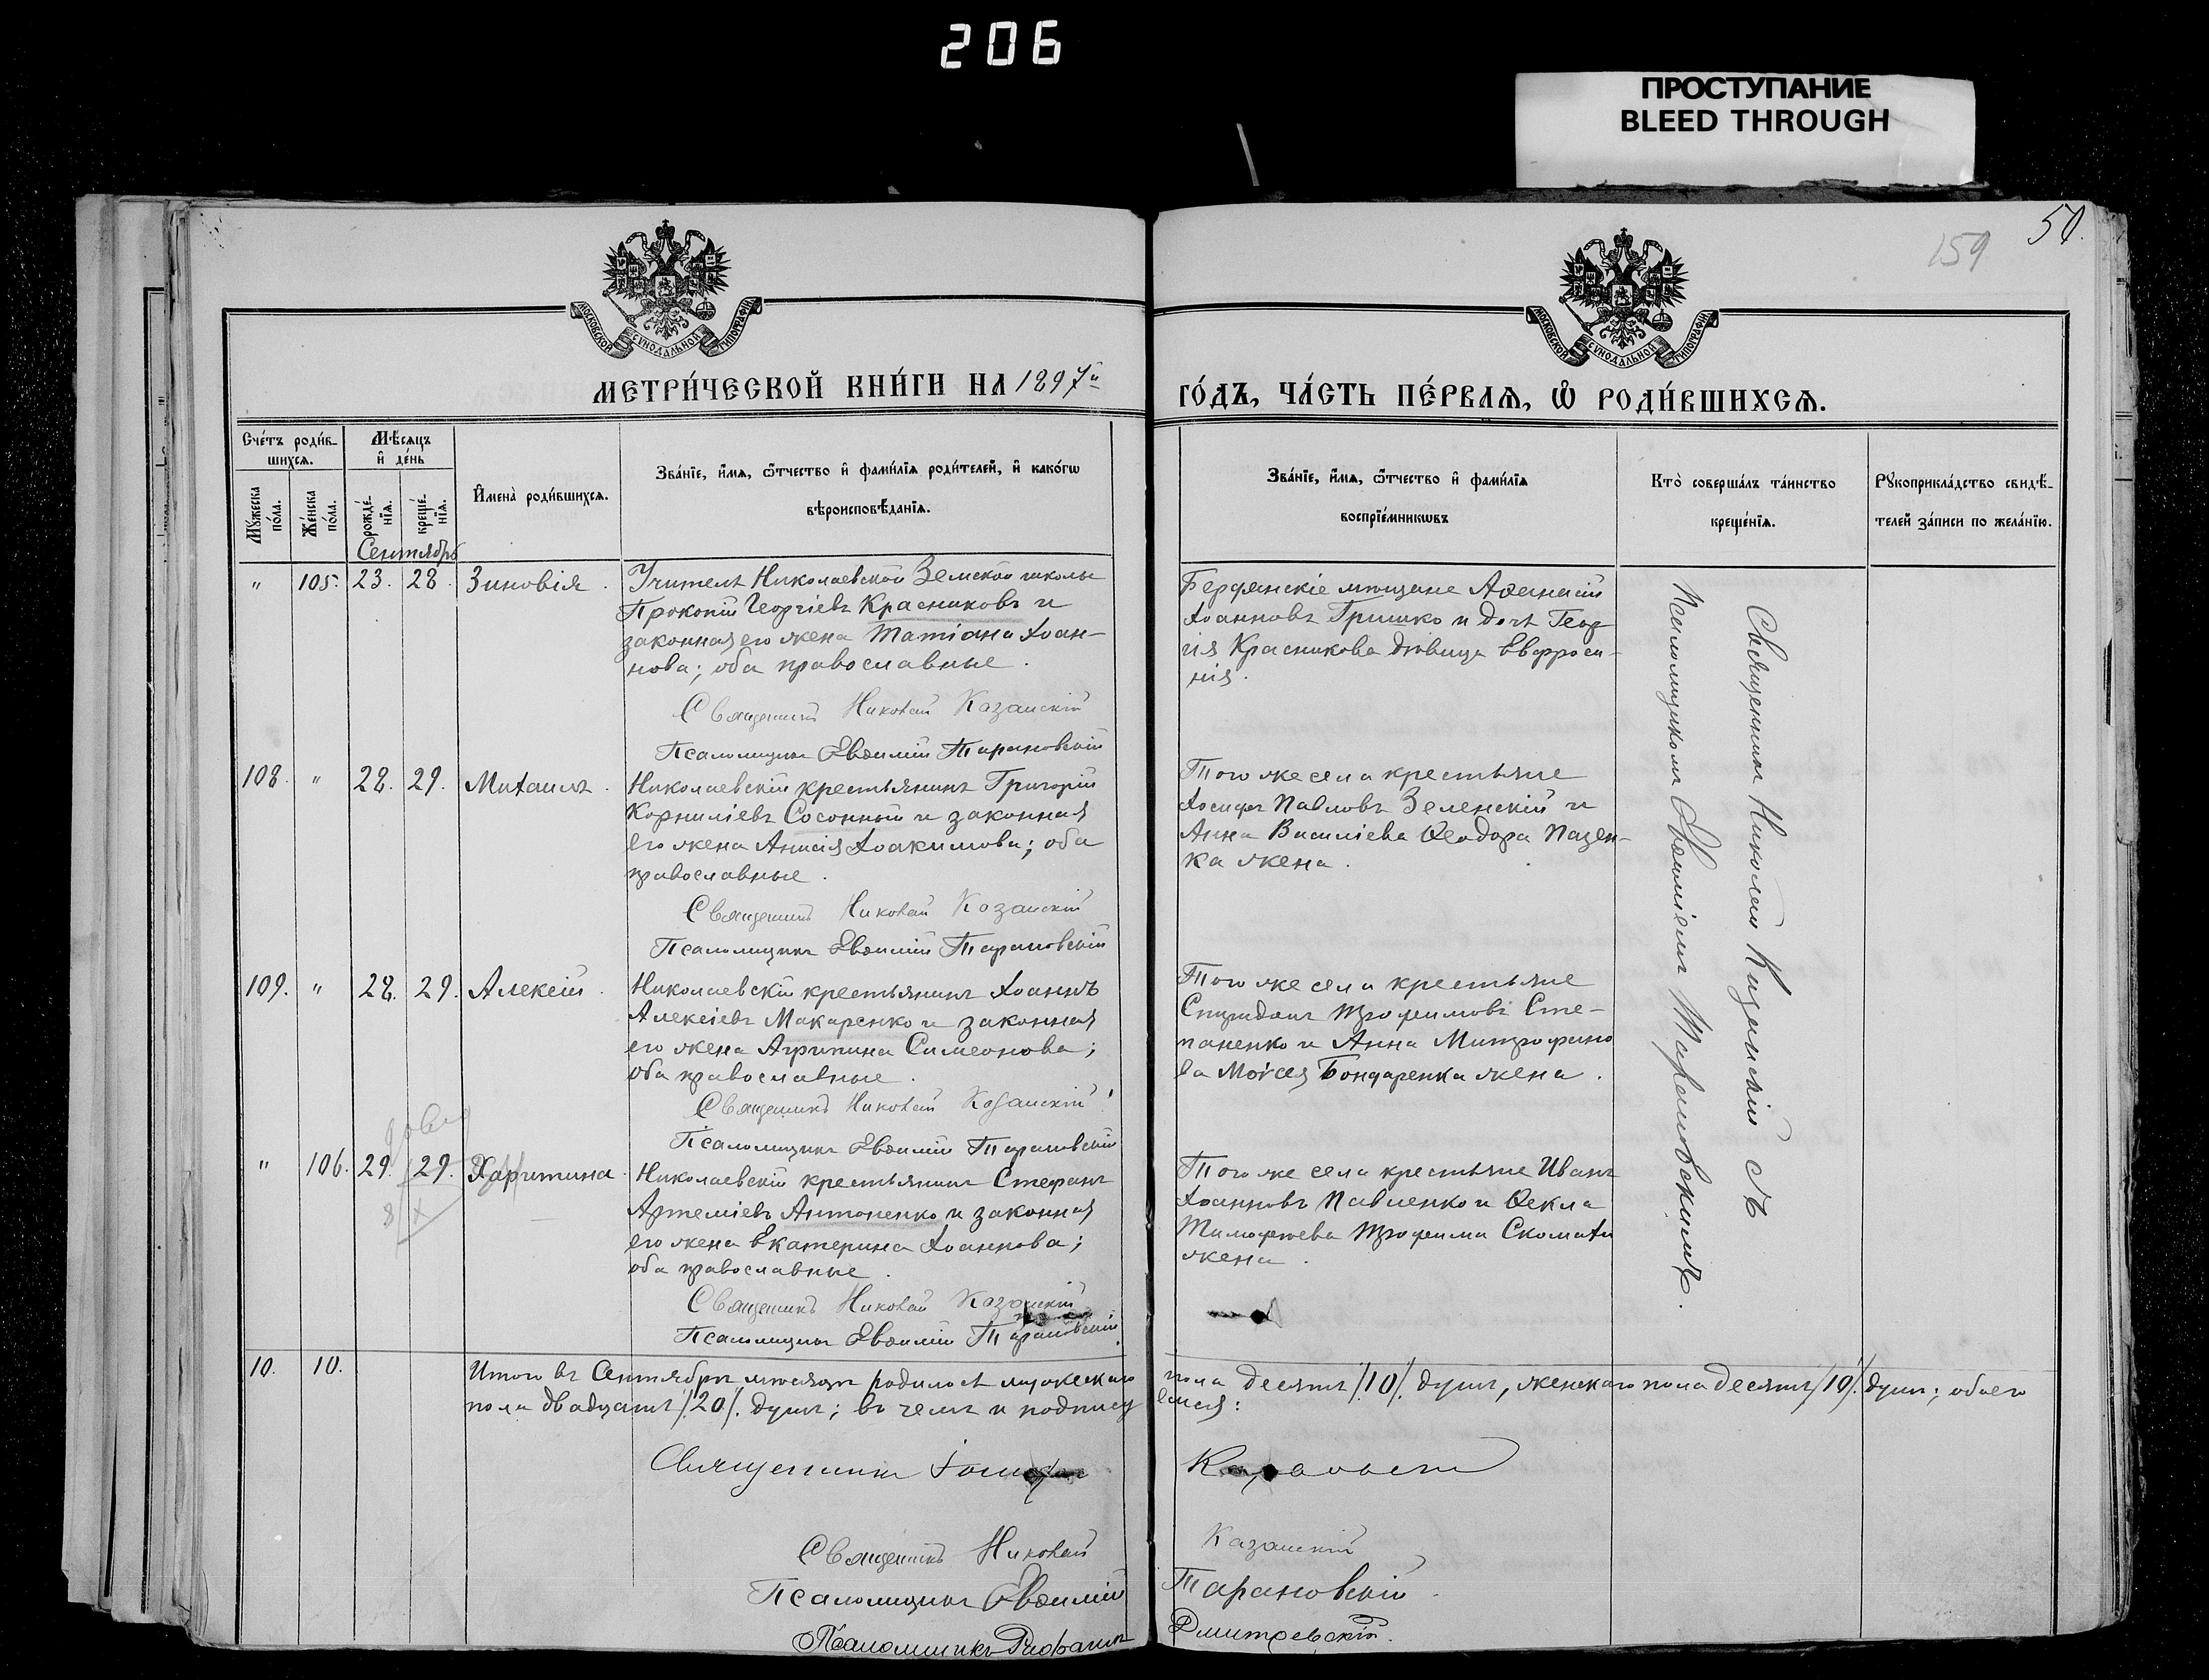 206
ПРОСТУПАНИЕ
BLEED THROUGH
159
50.
МОСКОВСКОЙ СѴНОДАЛЬНОЙ ТИПОГРАФІИ
МОСКОВСКОЙ СѴНОДАЛЬНОЙ ТИПОГРАФІИ
МЕТРИ́ЧЕСКОЙ КНИ́ГИ НА 1897й
ГО́ДЪ, ЧА́СТЬ ПЕ́РВАѦ, Ѡ҆ РОДИ́ВШИХСѦ.
Сче́тъ роди́в-
шихсѧ.
Мꙋ́жеска по́ла.
Же́нска по́ла.
Мѣ́сѧцъ и҆ де́нь
рожде́-нїѧ.
креще́-нїѧ.
И҆мена̀ роди́вшихсѧ.
Зва́нїе, и҆́мѧ, ѻ҆́тчество и҆ фами́лїѧ роди́телей, и҆ како́гѡ
вѣроисповѣ́данїѧ.
Зва́нїе, и҆́мѧ, ѻ҆́тчество и҆ фами́лїѧ
воспрїе́мникѡвъ
Кто̀ соверша́лъ та́инство
креще́нїѧ.
Рꙋкоприкла́дство свидѣ́-
телей за́писи по жела́нїю.
Сентябрь
" 105. 23. 28. Зиновія.
Учитель Николаевской Земской школы
Прокопій Георгіевъ Красниковъ и
законная его жена Татіана Іоан-
нова; оба православные.
Священникъ Николай Казанскій
Псаломщикъ Евѳимій Тарановскій
Бердянскіе мѣщане Аѳанасій
Іоанновъ Гришко и дочь Геор-
гія Красникова дѣвица Евфроси-
нія.
108. " 28. 29. Михаилъ.
Николаевскій крестьянинъ Григорій
Корниліевъ Сосонный и законная
его жена Анисія Іоакимова; оба
православные.
Священникъ Николай Казанскій
Псаломщикъ Евѳимій Тарановскій
Того же села крестьяне
Іосифъ Павловъ Зеленскій и
Анна Василіева Ѳеодора Пазен-
ка жена.
109. " 28. 29. Алексій.
Николаевскій крестьянинъ Іоаннъ
Алексіевъ Макаренко и законная
его жена Агрипина Симеонова;
оба православные.
Священникъ Николай Казанскій
Псаломщикъ Евѳимій Тарановскій
Того же села крестьяне
Спиридонъ Трофимовъ Сте-
паненко и Анна Митрофано
ва Моѵсея Бондаренка жена.
" 106. 29. 29. Харитина.
Николаевскій крестьянинъ Стефанъ
Артеміевъ Антоненко и законная
его жена Екатерина Іоаннова;
оба православные.
Священникъ Николай Казанскій
Псаломщикъ Евѳимій Тарановскій
Того же села крестьяне Иванъ
Іоанновъ Павленко и Ѳекла
Тимофѣева Трофима Скомаха
жена.
Священникъ Николай Казанскій съ
Псаломщикомъ Евѳиміемъ Тарановскимъ.
10. 10.
Итого въ Сентябрѣ мѣсяцѣ родилось мужескаго пола десять /10/. душъ, женскаго пола десять /10/. душъ; обоего
пола двадцать /20/. душъ; въ чемъ и подписуемся:
Священникъ
Священникъ Николай Казанскій
Псаломщикъ Евѳимій Тарановскій
Псаломщикъ Дмитревскій.